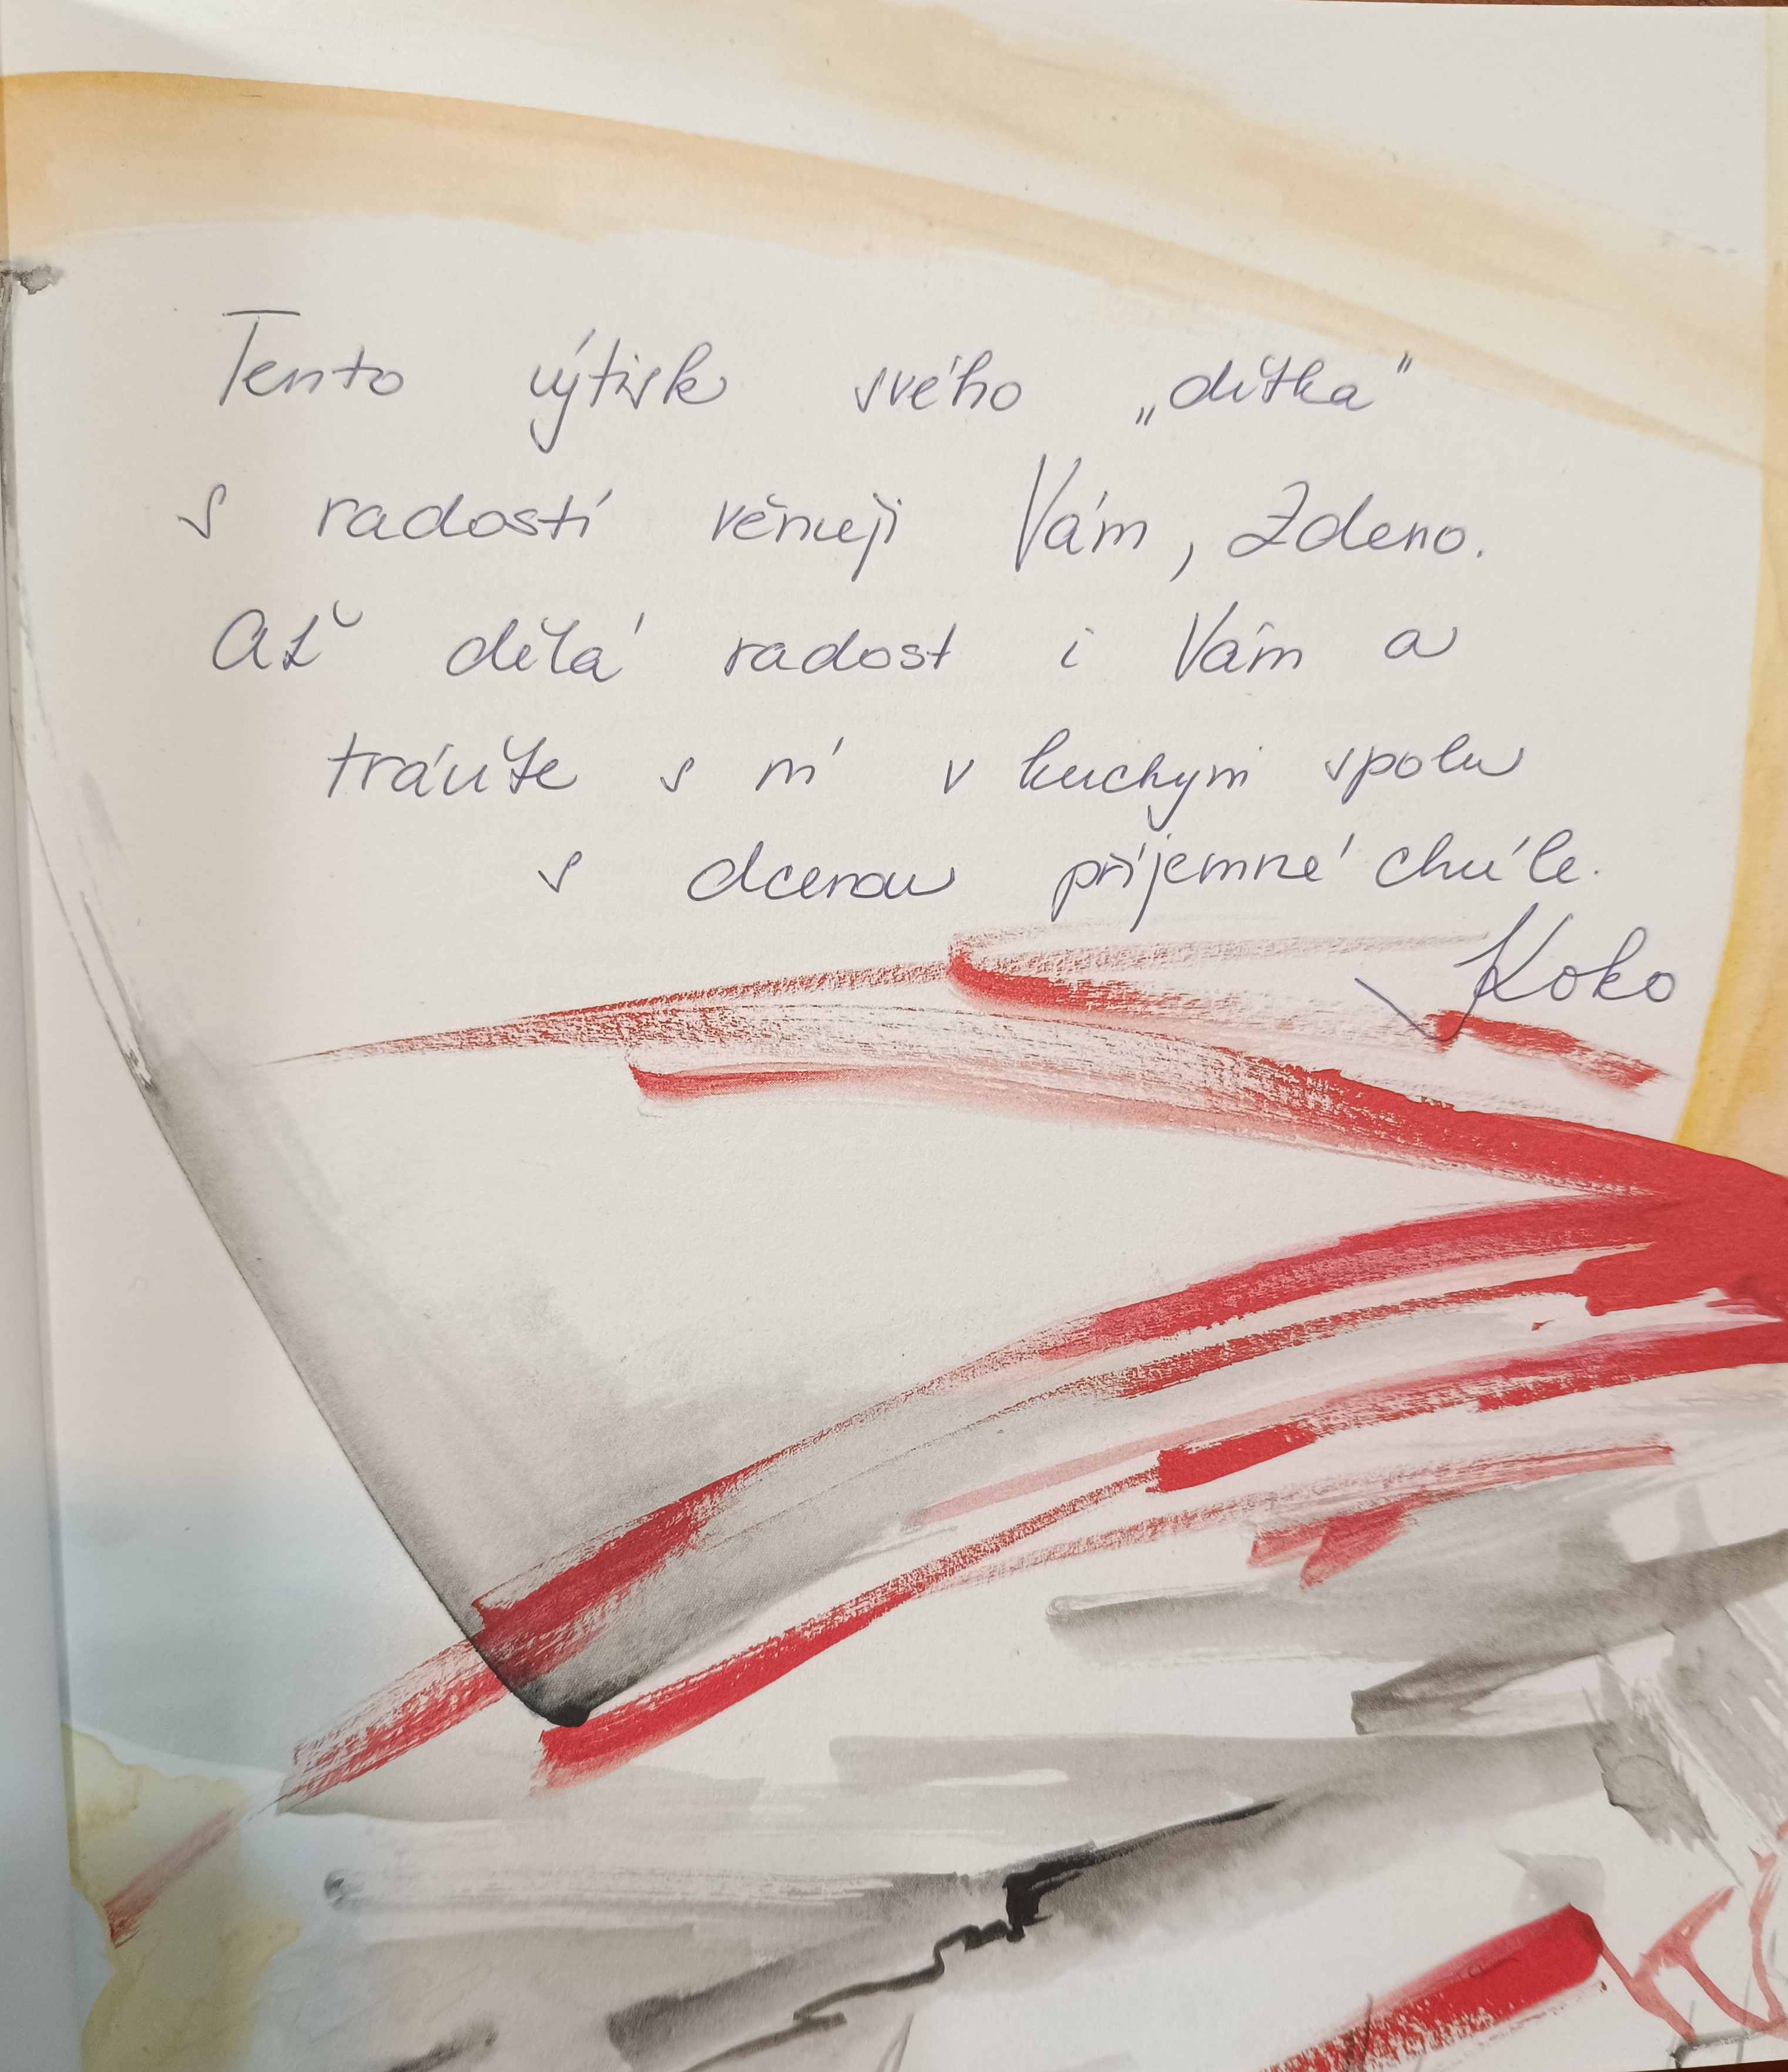 Tento výtisk svého „dítka"
s radostí věnuji Vám, Zdeno.
Ať dělá radost i Vám a
trávíte s ní v kuchyni spolu
s dcerou příjemné chvíle.
Koko